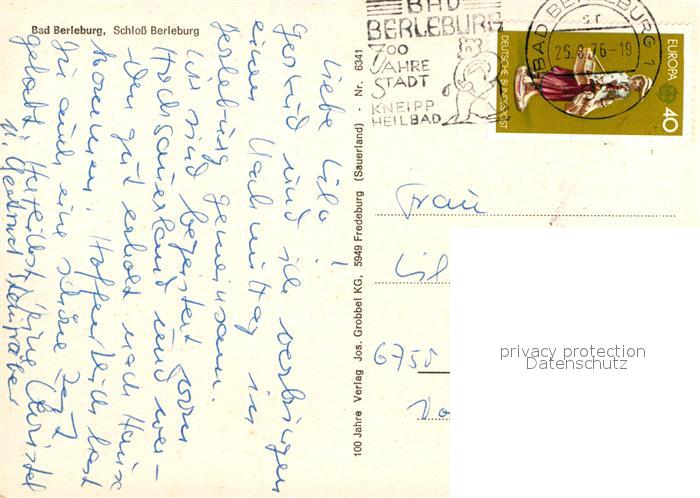 Bad Berleburg, Schloß Berleburg
Liebe Lilo!
Gertrud und ich verbringen
einen Nachmittag in
Berleburg gemeinsam.
Wir sind begeistert vom
Hochsauerland und wer-
den gut erholt nach Hause
kommen. Hoffentlich hast
Du auch eine schöne Zeit
gehabt. Herzlichst Deine Christel
u. Gertrud
100 Jahre Verlag Jos. Grobbel KG, 5949 Fredeburg (Sauerland) - Nr. 6341
BAD
BERLEBURG
700
JAHRE
STADT
KNEIPP
HEILBAD
BAD BERLEBURG 1
25.8.76-19
DEUTSCHE BUNDESPOST
EUROPA
40
Frau
Lil
6750
privacy protection
Datenschutz